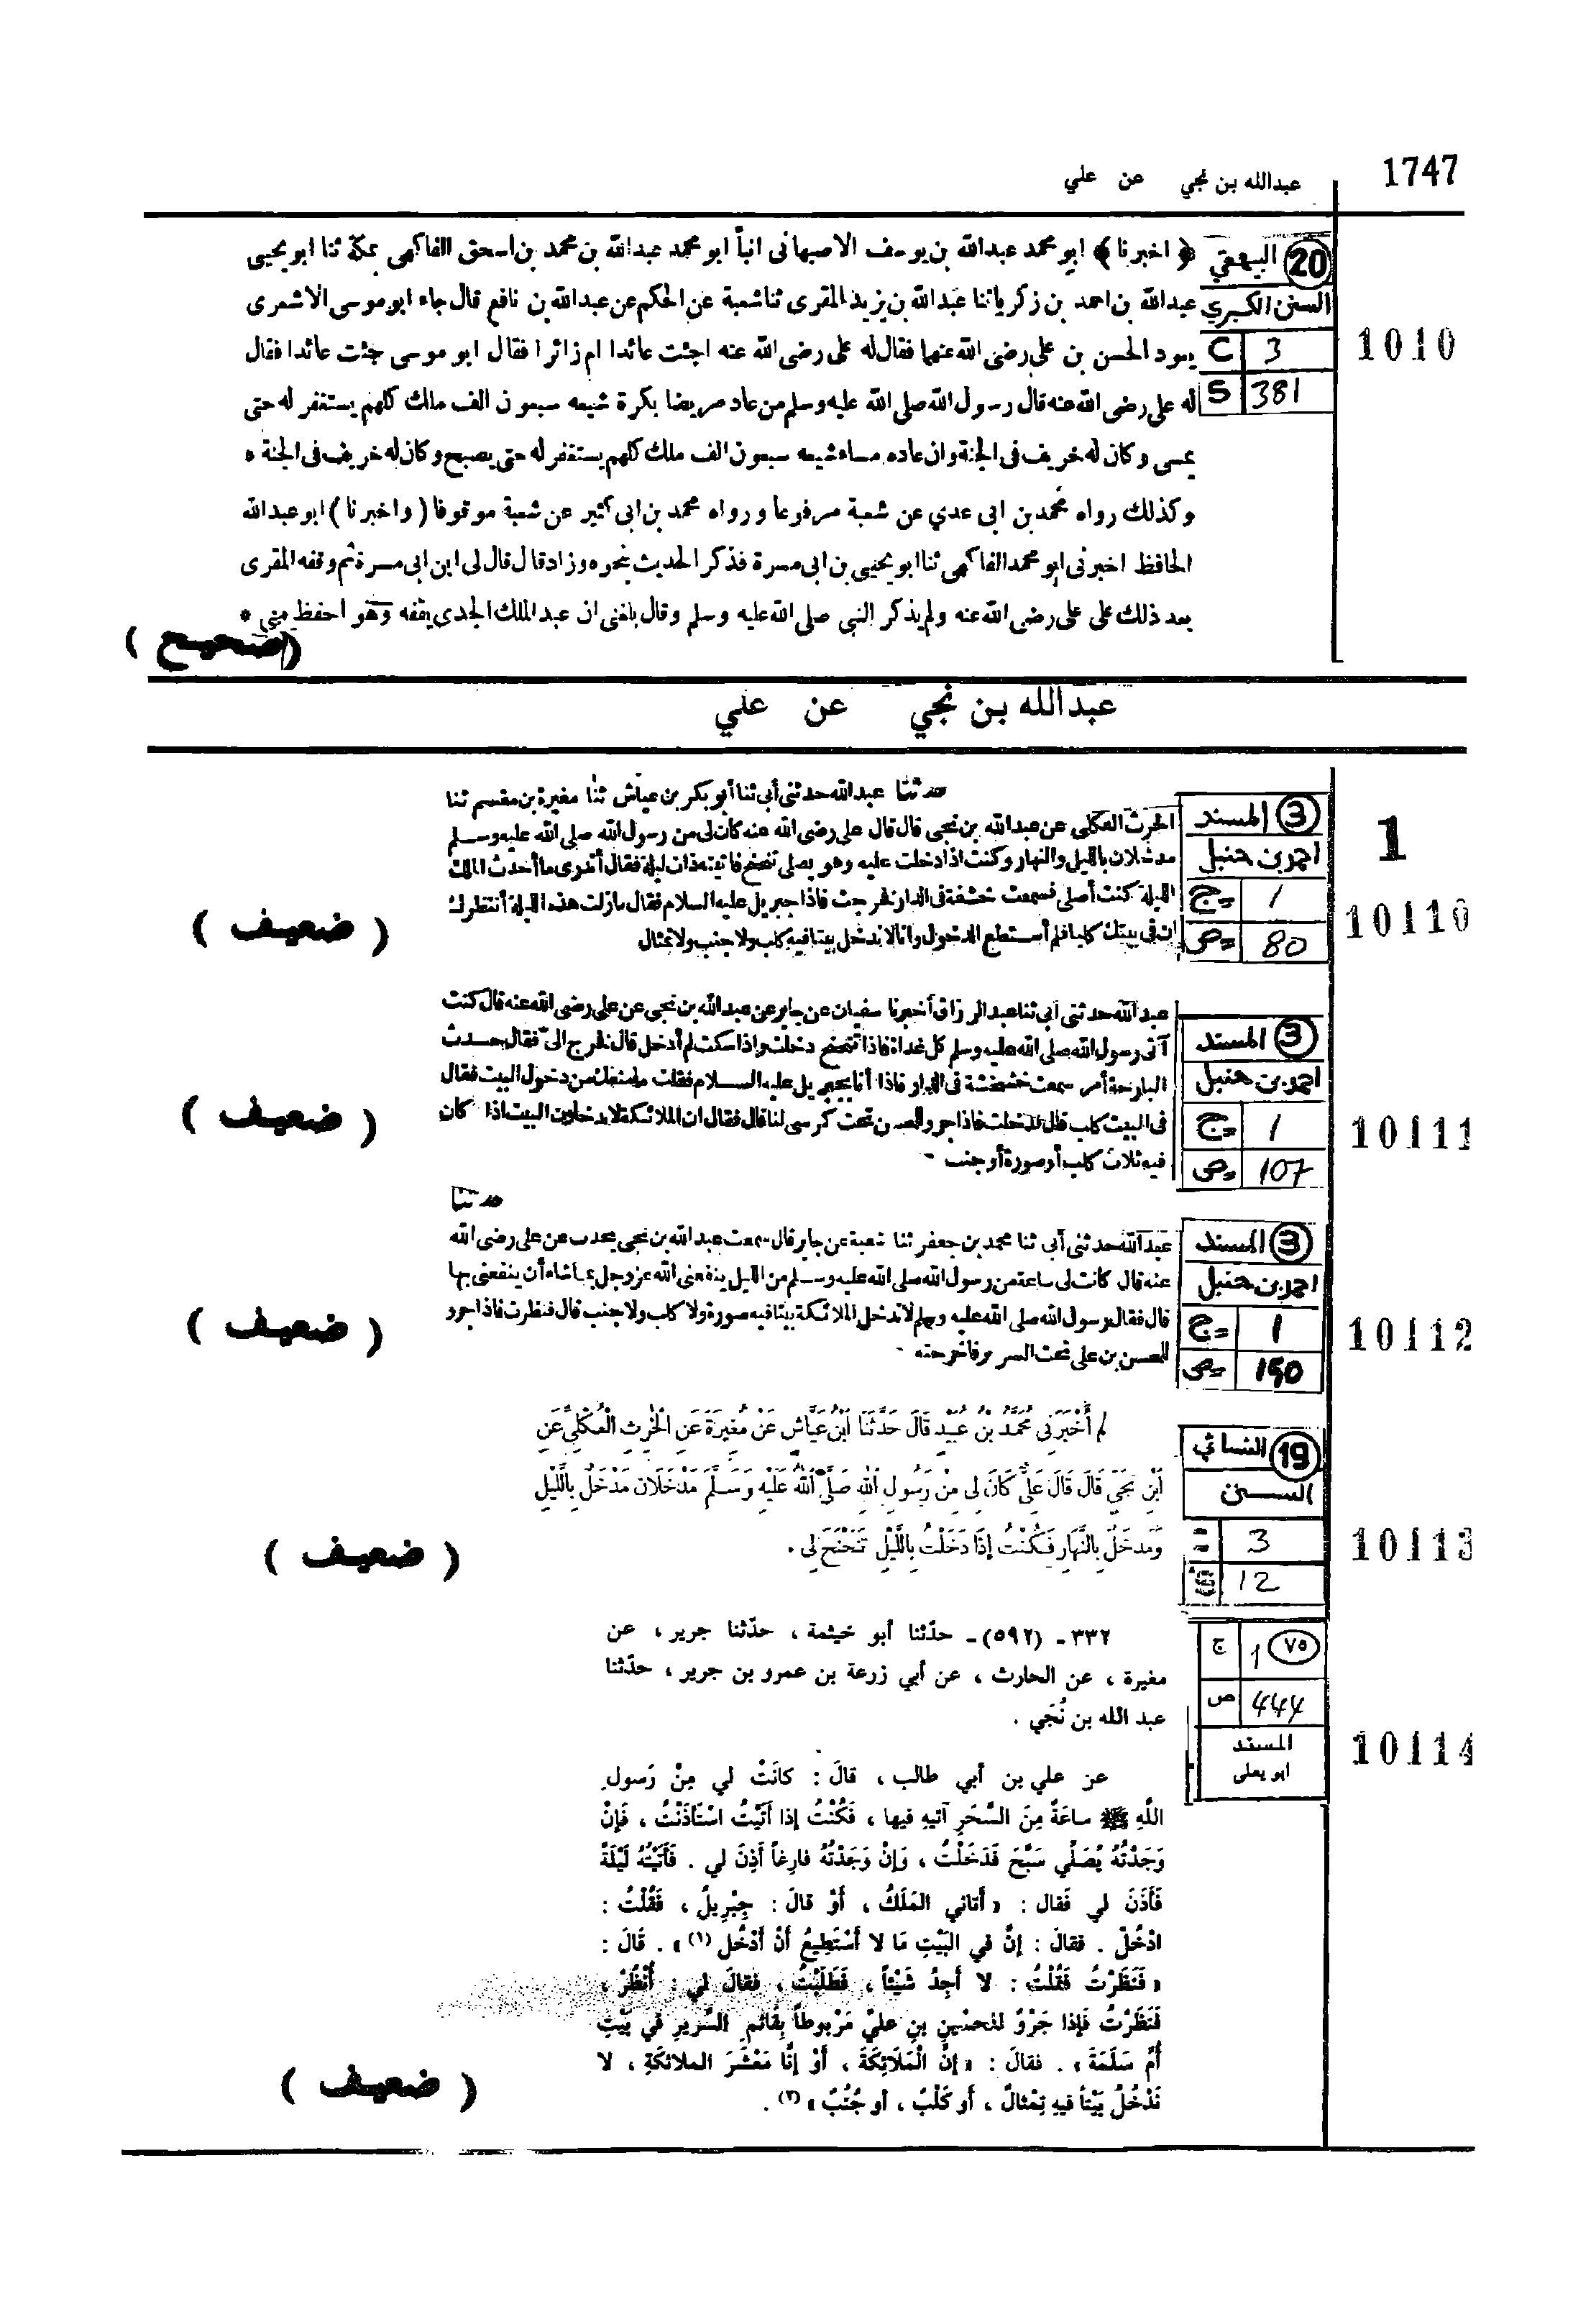 1747
عبدالله بن نجي عن علي
20 البيهقي
السنن الكبري
C 3
S 381
1010
﴿ اخبرنا ﴾ ابو محمد عبدالله بن يوسف الاصبهانى انبأ ابو محمد عبدالله بن محمد بن اسحق الفاكهى بمكة ثنا ابو يحيى
عبدالله بن احمد بن زكريا ثنا عبدالله بن يزيد المقرى ثنا شعبة عن الحكم عن عبدالله بن نافع قال جاء ابو موسى الاشعرى
يعود الحسن بن على رضى الله عنهما فقال له على رضى الله عنه اجئت عائدا ام زائرا فقال ابو موسى جئت عائدا فقال
له على رضى الله عنه قال رسول الله صلى الله عليه وسلم من عاد مريضا بكرة شيعه سبعون الف ملك كلهم يستغفر له حتى
يمسى وكان له خريف فى الجنة وان عاده مساء شيعه سبعون الف ملك كلهم يستغفر له حتى يصبح وكان له خريف فى الجنة ٥
وكذلك رواه محمد بن ابى عدي عن شعبة مرفوعا ورواه محمد بن ابى كثير عن شعبة موقوفا ( واخبرنا ) ابو عبدالله
الحافظ اخبرنى ابو محمد الفاكهى ثنا ابو يحيى بن ابى مسرة فذكر الحديث بنحوه وزاد قال قال لى ابن ابى مسرة ثم وقفه المقرى
بعد ذلك على على رضى الله عنه ولم يذكر النبى صلى الله عليه وسلم وقال بلغنى ان عبد الملك الجدى يقفه وهو احفظ منى *
( صحيح )
عبدالله بن نجي عن علي
3 المسند
احمد بن حنبل
ج= 1
ص= 80
1
10110
حدثنا عبد الله حدثنى أبى ثنا أبو بكر بن عياش ثنا مغيرة بن مقسم ثنا
الحرث العكلى عن عبد الله بن نجى قال قال على رضى الله عنه كان لى من رسول الله صلى الله عليه وسلم
مدخلان بالليل والنهار وكنت اذا دخلت عليه وهو يصلى تنحنح فأتيته ذات ليلة فقال أتدرى ما أحدث الملك
الليلة كنت أصلى فسمعت خشفة فى الدار فخرجت فاذا جبريل عليه السلام فقال مازلت هذه الليلة أنتظرك
ان فى بيتك كلبا فلم أستطع الدخول وانا لا ندخل بيتا فيه كلب ولا جنب ولا تمثال
( ضعيف )
3 المسند
احمد بن حنبل
ج= 1
ص= 107
10111
عبد الله حدثنى أبى ثنا عبد الرزاق أخبرنا سفيان عن جابر عن عبد الله بن نجى عن على رضى الله عنه قال كنت
آتى رسول الله صلى الله عليه وسلم كل غداة فاذا تنحنح دخلت واذا سكت لم أدخل قال فخرج الىّ فقال حدث
البارحة أمر سمعت خشخشة فى الدار فاذا أنا بجبريل عليه السلام فقلت ما منعك من دخول البيت فقال
فى البيت كلب قال فدخلت فاذا جرو للحسن تحت كرسى لنا قال فقال ان الملائكة لا يدخلون البيت اذا كان
فيه ثلاث كلب أو صورة أو جنب -
( ضعيف )
حدثنا
3 المسند
احمد بن حنبل
ج= 1
ص= 150
10112
عبد الله حدثنى أبى ثنا محمد بن جعفر ثنا شعبة عن جابر قال سمعت عبد الله بن نجى يحدث عن على رضى الله
عنه قال كانت لى ساعة من رسول الله صلى الله عليه وسلم من الليل ينفعنى الله عز وجل بما شاء أن ينفعنى بها
قال فقال رسول الله صلى الله عليه وسلم لا تدخل الملائكة بيتا فيه صورة ولا كلب ولا جنب قال فنظرت فاذا جرو
للحسن بن على تحت السرير فأخرجته -
( ضعيف )
19 النسائي
السنن
= 3
S 12
10113
أَخْبَرَنِى مُحَمَّدُ بْنُ عُبَيْدٍ قَالَ حَدَّثَنَا ابْنُ عَيَّاشٍ عَنْ مُغِيرَةَ عَنِ الْحٰرِثِ الْعُكْلِىِّ عَنِ
ابْنِ نُجَىٍّ قَالَ قَالَ عَلِىٌّ كَانَ لِى مِنْ رَسُولِ اللهِ صَلَّى اللهُ عَلَيْهِ وَسَلَّمَ مَدْخَلَانِ مَدْخَلٌ بِاللَّيْلِ
وَمَدْخَلٌ بِالنَّهَارِ فَكُنْتُ إِذَا دَخَلْتُ بِاللَّيْلِ تَنَحْنَحَ لِى .
( ضعيف )
٧٥ 1 ج
444 ص
المسند
ابو يعلى
10114
٣٣٢ - (٥٩٢) - حدّثنا أبو خيثمة ، حدّثنا جرير ، عن
مغيرة ، عن الحارث ، عن أبي زرعة بن عمرو بن جرير ، حدّثنا
عبد الله بن نُجَي .
عن علي بن أبي طالب ، قالَ : كانَتْ لي مِنْ رَسولِ
اللَّهِ ﷺ ساعَةٌ مِنَ السَّحَرِ آتيهِ فيها ، فَكُنْتُ إذا أتَيْتُ اسْتَأذَنْتُ ، فَإنْ
وَجَدْتُهُ يُصَلِّي سَبَّحَ فَدَخَلْتُ ، وَإنْ وَجَدْتُهُ فارِغاً أذِنَ لي . فَأتَيْتُهُ لَيْلَةً
فَأذَنَ لي فَقال : « أتاني المَلَكُ ، أوْ قالَ : جِبْرِيلُ ، فَقُلْتُ :
ادْخُلْ . فقالَ : إنَّ في البَيْتِ مَا لا أسْتَطِيعُ أنْ أدْخُل (١) » . قَالَ :
« فَنَظَرْتُ فَقُلْتُ : لا أجِدُ شَيْئاً ، فَطَلَبْتُ ، فقالَ لي : أُنْظُرْ ،
فَنَظَرْتُ فَإذا جَرْوٌ للحسَيْنِ بنِ عليّ مَرْبوطاً بِقَائمِ السَّريرِ في بَيْتِ
أُمِّ سَلَمَةَ » . فقالَ : « إنَّ الْمَلَائِكَةَ ، أوْ إنَّا مَعْشَرَ الملائكَةِ ، لا
نَدْخُلُ بَيْتاً فيهِ تِمْثالٌ ، أو كَلْبٌ ، أو جُنُبٌ » (٢) .
( ضعيف )